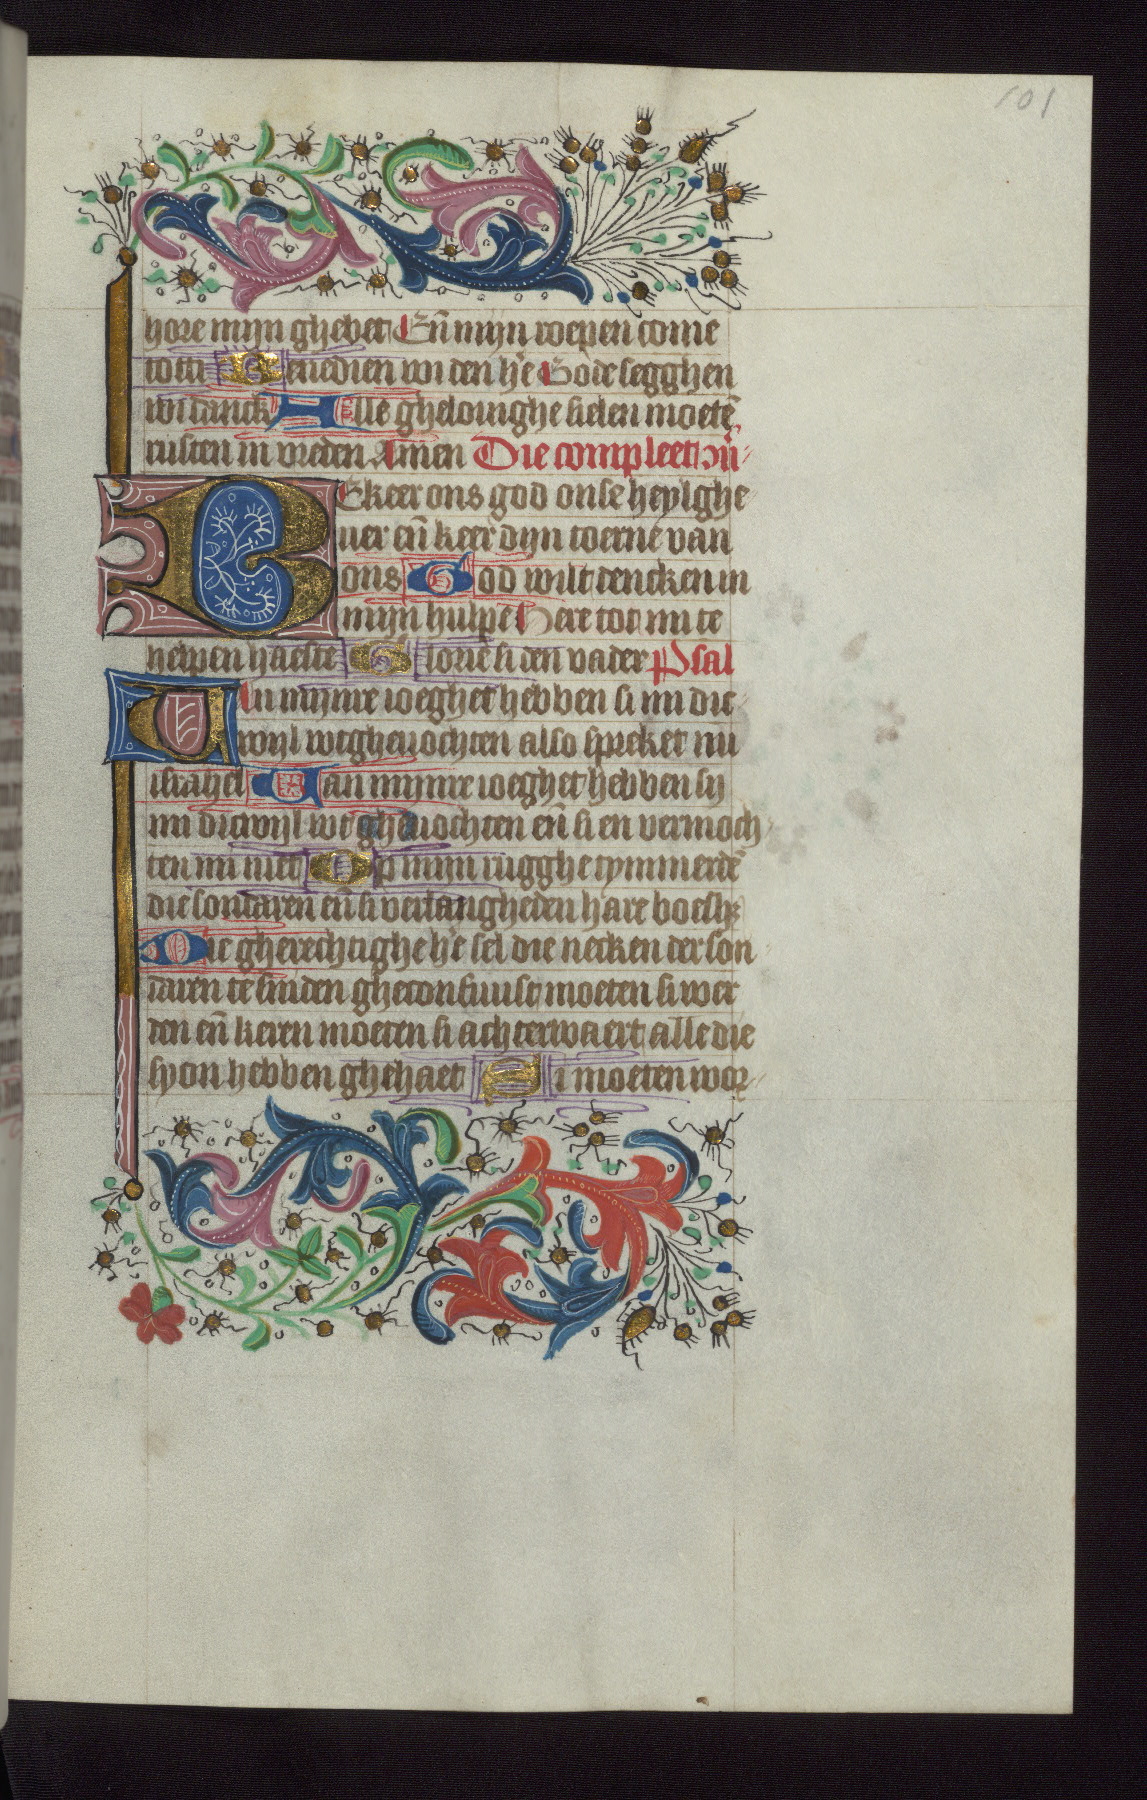 101
hore mijn ghebet Eñ mijn roepen come
totti Benedien wi den he Gode segghen
wi danck Alle ghelouighe sielen moetē
rusten in vreden Amen Die compleet
BEkeer ons god onse heylghe
uer eñ keer dijn toerne van
ons God wilt dencken in
mijn hulpe Here tot mi te
helpen haeste Glorie si den vader Psal
UAn mijnre ioeghet hebben si mi die
wijl wtgheuochten also sprcket nu
israhel Uan mijnre ioeghet hebben sy
mi dicwijl wtgheuochten eñ si en vermoch
ten mi niet Op mijn rugghe tymmerdē
die sondaren eñ si verlangheden hare
Die gherechtighe he sel die necken der son
daren te sniden gheconfuust moeten si wer
den eñ keren moeten si achterwaert alle die
syon hebben ghehaet Si moeten wor